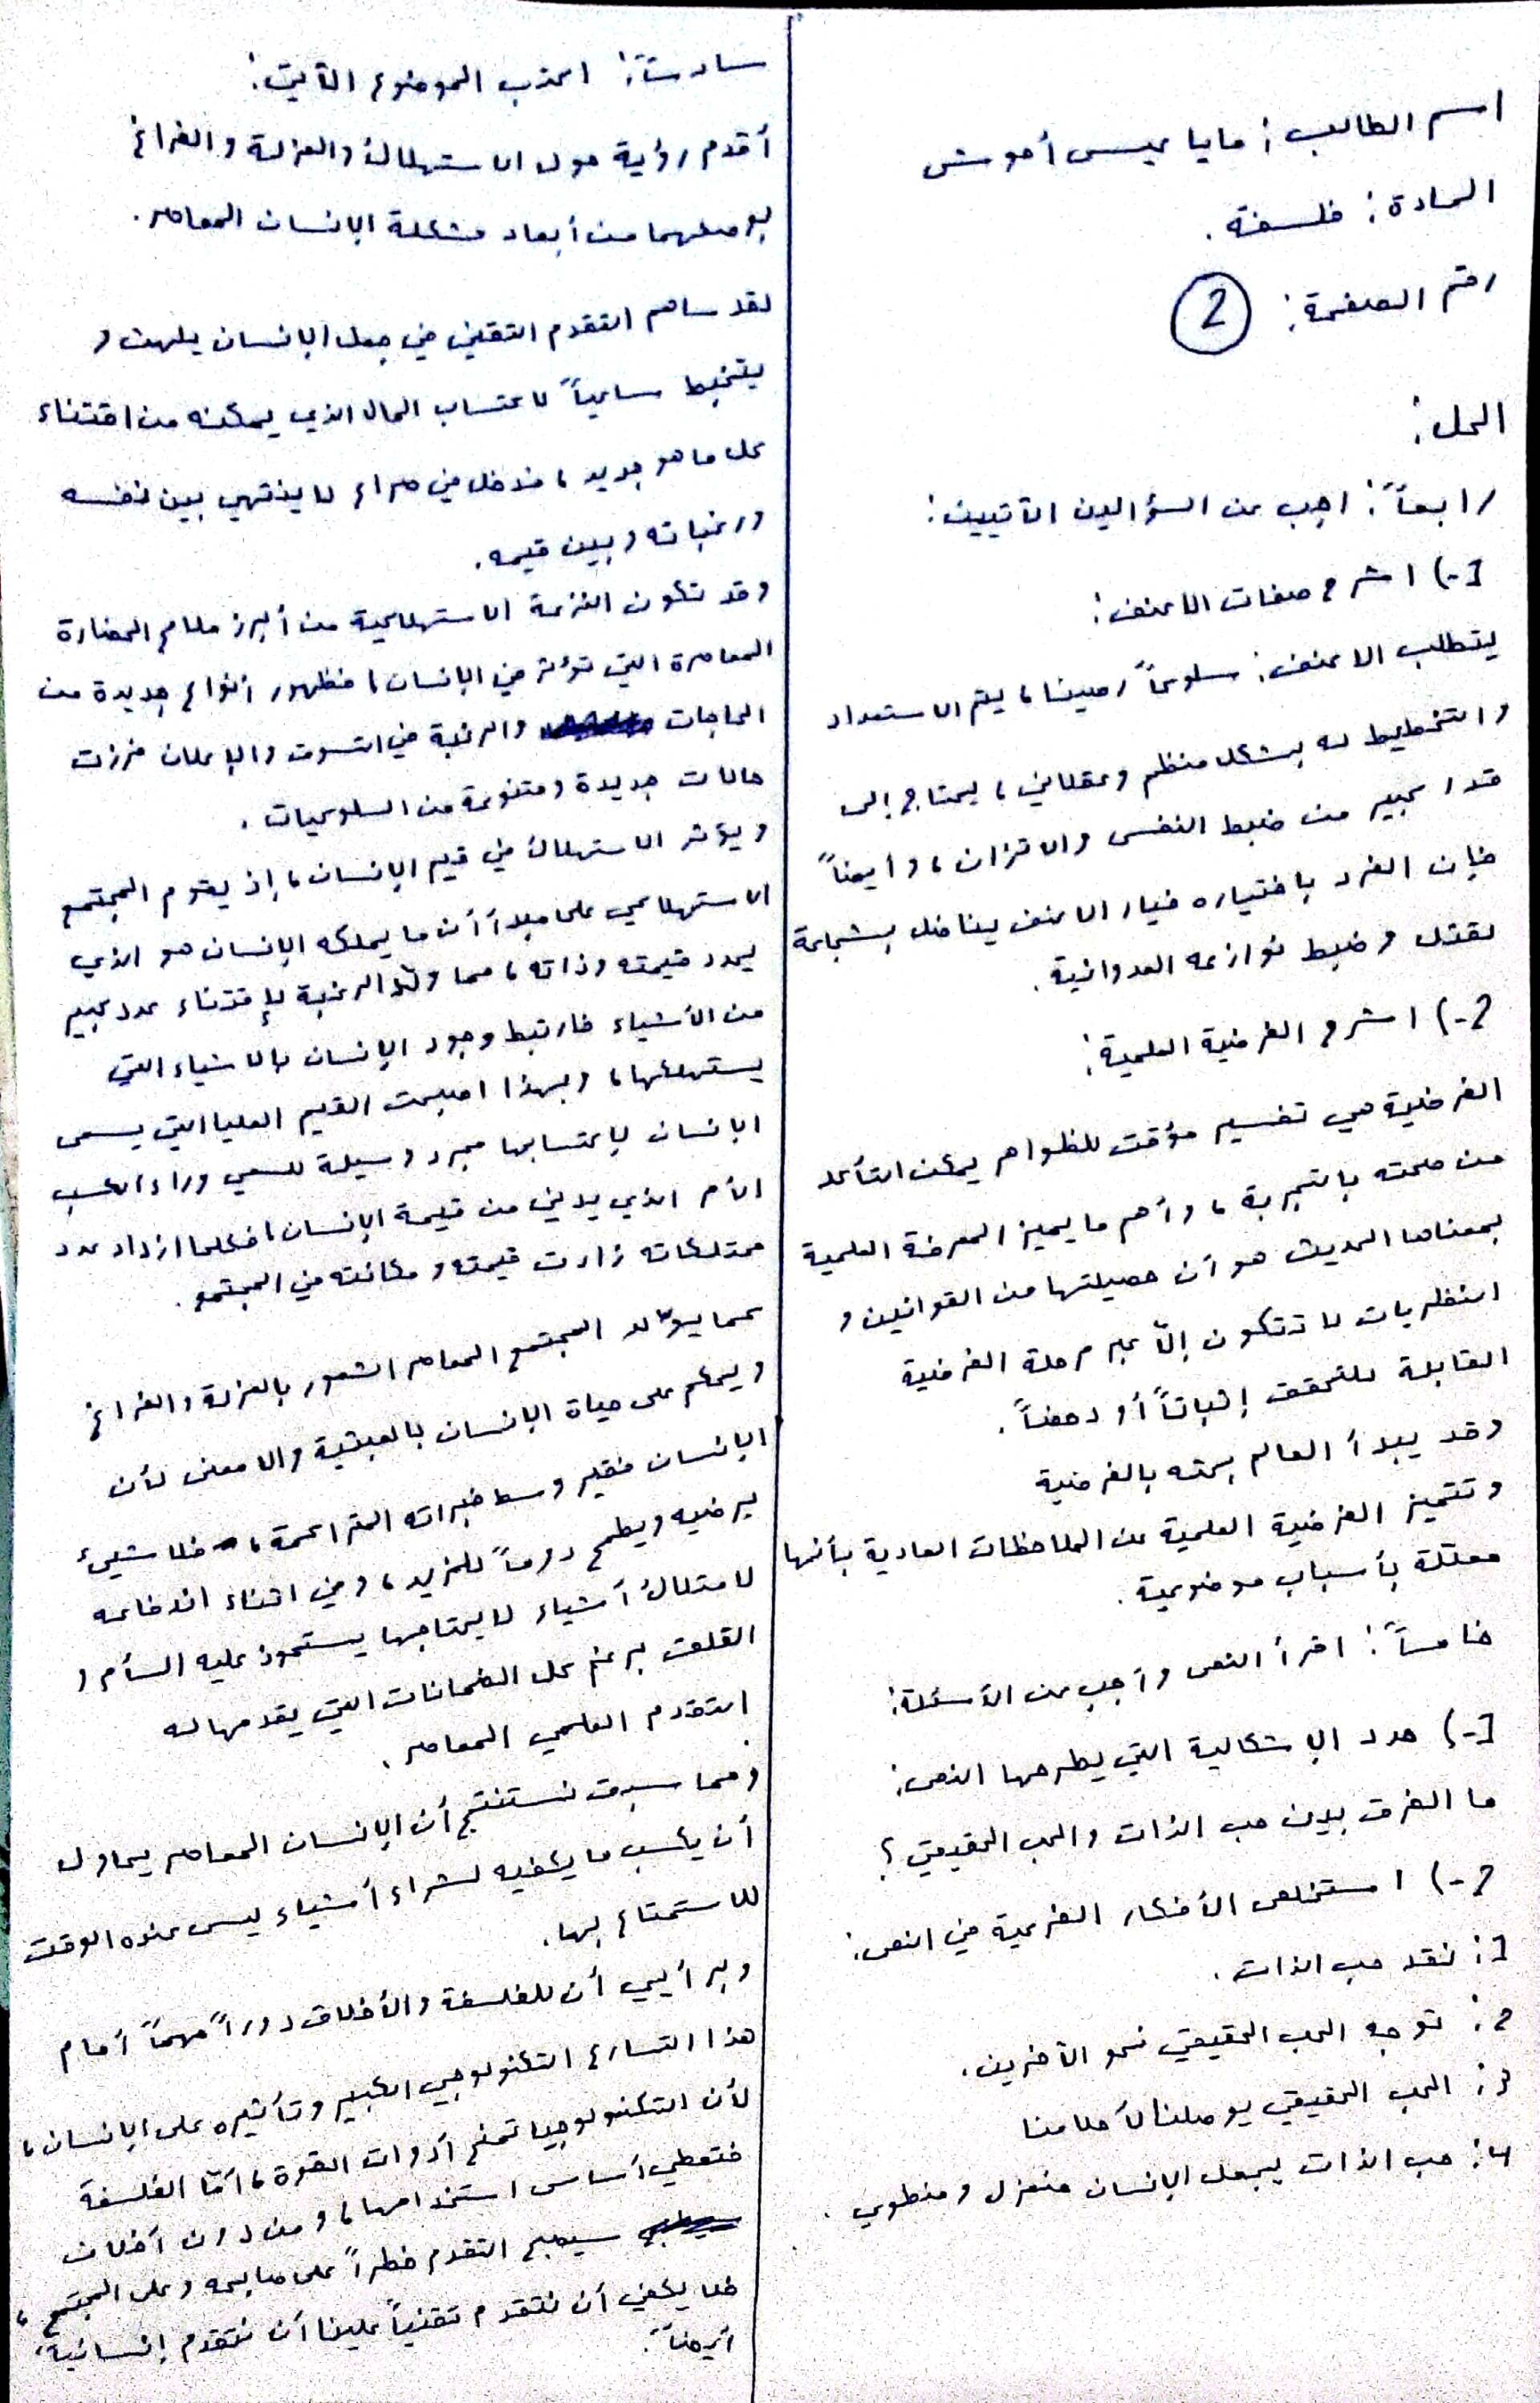 اسم الطالب: مايا عيسى أحوش
المادة: فلسفة.
رقم الصفحة: 2
الحل:
رابعاً: اجب عن السؤالين الآتيين:
1-) اشرح صفات اللاعنف:
يتطلب اللاعنف: سلوكاً رصينا، يتم الاستعداد
والتخطيط له بشكل منظم وعقلاني، يحتاج إلى
قدر كبير من ضبط النفس والاتزان، وأيضاً
فإن الفرد باختياره خيار اللاعنف يناضل بشجاعة
لقتل وضبط نوازعه العدوانية.
2-) اشرح الفرضية العلمية:
الفرضية هي تفسير مؤقت للظواهر يمكن التأكد
من صحته بالتجربة، وأهم ما يميز المعرفة العلمية
بمعناها الحديث هو أن حصيلتها من القوانين و
النظريات لا تتكون إلّا عبر مرحلة الفرضية
القابلة للتحقق إثباتاً أو دحضاً.
وقد يبدأ العالم بحثه بالفرضية
وتتميز الفرضية العلمية عن الملاحظات العادية بأنها
معللة بأسباب موضوعية.
خامساً: اقرأ النص وأجب عن الأسئلة:
1-) حدد الإشكالية التي يطرحها النص:
ما الفرق بين حب الذات والحب الحقيقي؟
2-) استخلص الأفكار الفرعية في النص:
1: نقد حب الذات.
2: توجه الحب الحقيقي نحو الآخرين.
3: الحب الحقيقي يوصلنا لأحلامنا
4: حب الذات يجعل الإنسان منعزل ومنطوي.
سادساً: اكتب الموضوع الآتي:
أقدم رؤية حول الاستهلاك والعزلة والفراغ
بوصفهما من أبعاد مشكلة الإنسان المعاصر.
لقد ساهم التقدم التقني في جعل الإنسان يلهث و
يتخبط ساعياً لاكتساب المال الذي يمكنه من اقتناء
كل ما هو جديد، فدخل في صراع لا ينتهي بين نفسه
ورغباته وبين قيمه.
وقد تكون النزعة الاستهلاكية من أبرز ملامح الحضارة
المعاصرة التي تؤثر في الإنسان، فظهور أنواع جديدة من
الحاجات والرغبة في التسوق والإعلان فرزت
حالات جديدة ومتنوعة من السلوكيات.
ويؤثر الاستهلاك في قيم الإنسان، إذ يقوم المجتمع
الاستهلاكي على مبدأ أن ما يملكه الإنسان هو الذي
يحدد قيمته وذاته، مما ولّد الرغبة بإقتناء عدد كبير
من الأشياء فارتبط وجود الإنسان بالاشياء التي
يستهلكها، وبهذا اصبحت القيم العليا التي يسعى
الإنسان لإكتسابها مجرد وسيلة للسعي وراء الكسب
الأمر الذي يدني من قيمة الإنسان، فكلما ازداد عدد
ممتلكاته زادت قيمته ومكانته في المجتمع.
كما يولّد المجتمع المعاصر الشعور بالعزلة والفراغ
ويحكم على حياة الإنسان بالعبثية واللامعنى لأن
الإنسان فقير وسط خبراته المتراكمة، فلا شيء
يرضيه ويطمح دوماً للمزيد، وفي اثناء اندفاعه
لامتلاك أشياء لا يحتاجها يستحوذ عليه السأم و
القلق برغم كل الضمانات التي يقدمها له
التقدم العلمي المعاصر.
ومما سبق نستنتج أن الإنسان المعاصر يحاول
أن يكسب ما يكفيه لشراء أشياء ليس عنده الوقت
للاستمتاع بها.
وبرأيي أن للفلسفة والأخلاق دوراً مهماً أمام
هذا التسارع التكنولوجي الكبير وتأثيره على الإنسان،
لأن التكنولوجيا تمنح أدوات القوة، أمّا الفلسفة
فتعطي أساس استخدامها، ومن دون أخلاق
سيصبح التقدم خطراً على صانعه وعلى المجتمع،
فلا يكفي أن نتقدم تقنياً علينا أن نتقدم إنسانية
أيضاً.